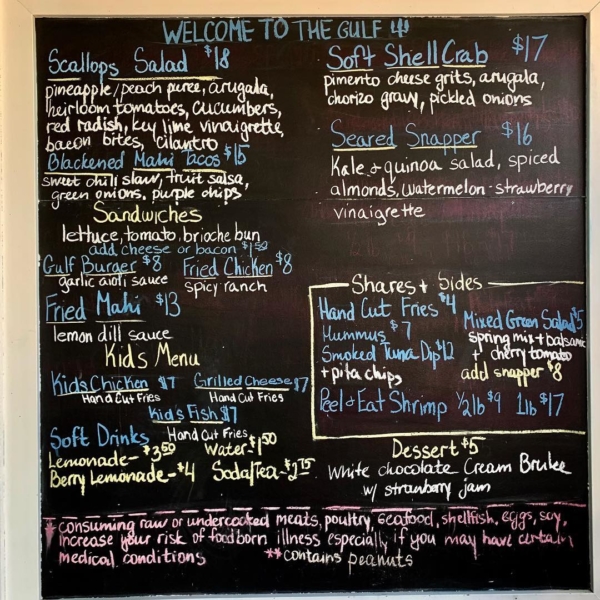 WELCOME TO THE GULF
Scallops Salad $18
pineapple/peach puree, arugala,
heirloom tomatoes, cucumbers,
red radish, key lime vinaigrette,
bacon bites, cilantro
Blackened Mahi Tacos $15
sweet chili slaw, fruit salsa,
green onions, purple chips
Sandwiches
lettuce, tomato, brioche bun
add cheese or bacon $1.50
Gulf Burger $8 Fried Chicken $8
garlic aioli sauce spicy ranch
Fried Mahi $13
lemon dill sauce
Kids Menu
Kids Chicken $7 Grilled Cheese $7
Hand Cut Fries Hand Cut Fries
Kids Fish $7
Hand Cut Fries
Soft Drinks
Lemonade- $3.50 Water- $1.50
Berry Lemonade- $4 Soda/Tea- $2.75
Soft Shell Crab $17
pimento cheese grits, arugala,
chorizo gravy, pickled onions
Seared Snapper $16
Kale + quinoa salad, spiced
almonds, watermelon-strawberry
vinaigrette
Shares + Sides
Hand Cut Fries $4
Hummus $7
Smoked Tuna Dip $12
+ pita chips
Mixed Green Salad $5
spring mix + balsamic
+ cherry tomato
add snapper $8
Peel + Eat Shrimp 1/2lb $9 1lb $17
Dessert $5
White chocolate Cream Brulee
w/ strawberry jam
* consuming raw or undercooked meats, poultry, seafood, shellfish, eggs, soy,
increase your risk of foodborn illness especially if you may have certain
medical conditions **contains peanuts